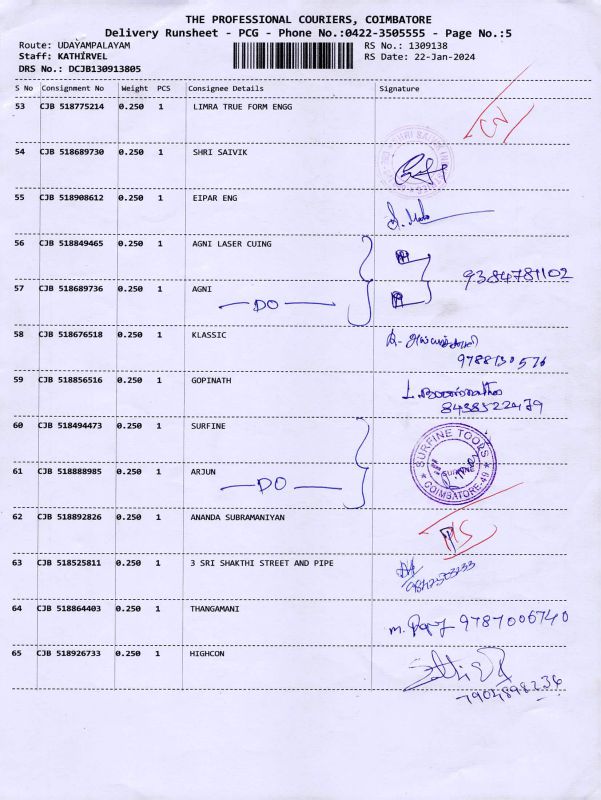 THE PROFESSIONAL COURIERS, COIMBATORE
Delivery Runsheet - PCG - Phone No.:0422-3505555 - Page No.:5
Route: UDAYAMPALAYAM RS No.: 1309138
Staff: KATHIRVEL RS Date: 22-Jan-2024
DRS No.: DCJB130913805
S No Consignment No Weight PCS Consignee Details Signature
53 CJB 518775214 0.250 1 LIMRA TRUE FORM ENGG
54 CJB 518689730 0.250 1 SHRI SAIVIK
55 CJB 518908612 0.250 1 EIPAR ENG
56 CJB 518849465 0.250 1 AGNI LASER CUING
9384781102
57 CJB 518689736 0.250 1 AGNI
DO
58 CJB 518676518 0.250 1 KLASSIC
9788130576
59 CJB 518856516 0.250 1 GOPINATH
8438522479
60 CJB 518494473 0.250 1 SURFINE
SURFINE TOOLS
SURFINE
COIMBATORE-49
61 CJB 518888985 0.250 1 ARJUN
DO
62 CJB 518892826 0.250 1 ANANDA SUBRAMANIYAN
63 CJB 518525811 0.250 1 3 SRI SHAKTHI STREET AND PIPE
64 CJB 518864403 0.250 1 THANGAMANI
9787006740
65 CJB 518926733 0.250 1 HIGHCON
7904898236